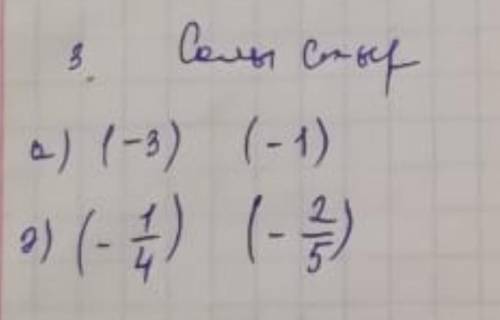 3. Салыстыр
а) (-3) (-1)
ә) (-1/4) (-2/5)